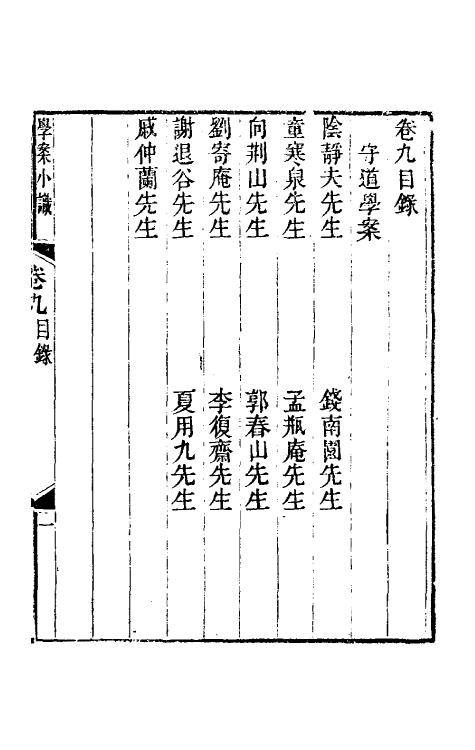 卷九目錄
守道學案
陰靜夫先生 錢南園先生
童寒泉先生 孟瓶庵先生
向荆山先生 郭春山先生
劉寄庵先生 李復齋先生
謝退谷先生 夏用九先生
戚仲蘭先生
學案小識 卷九目錄 一